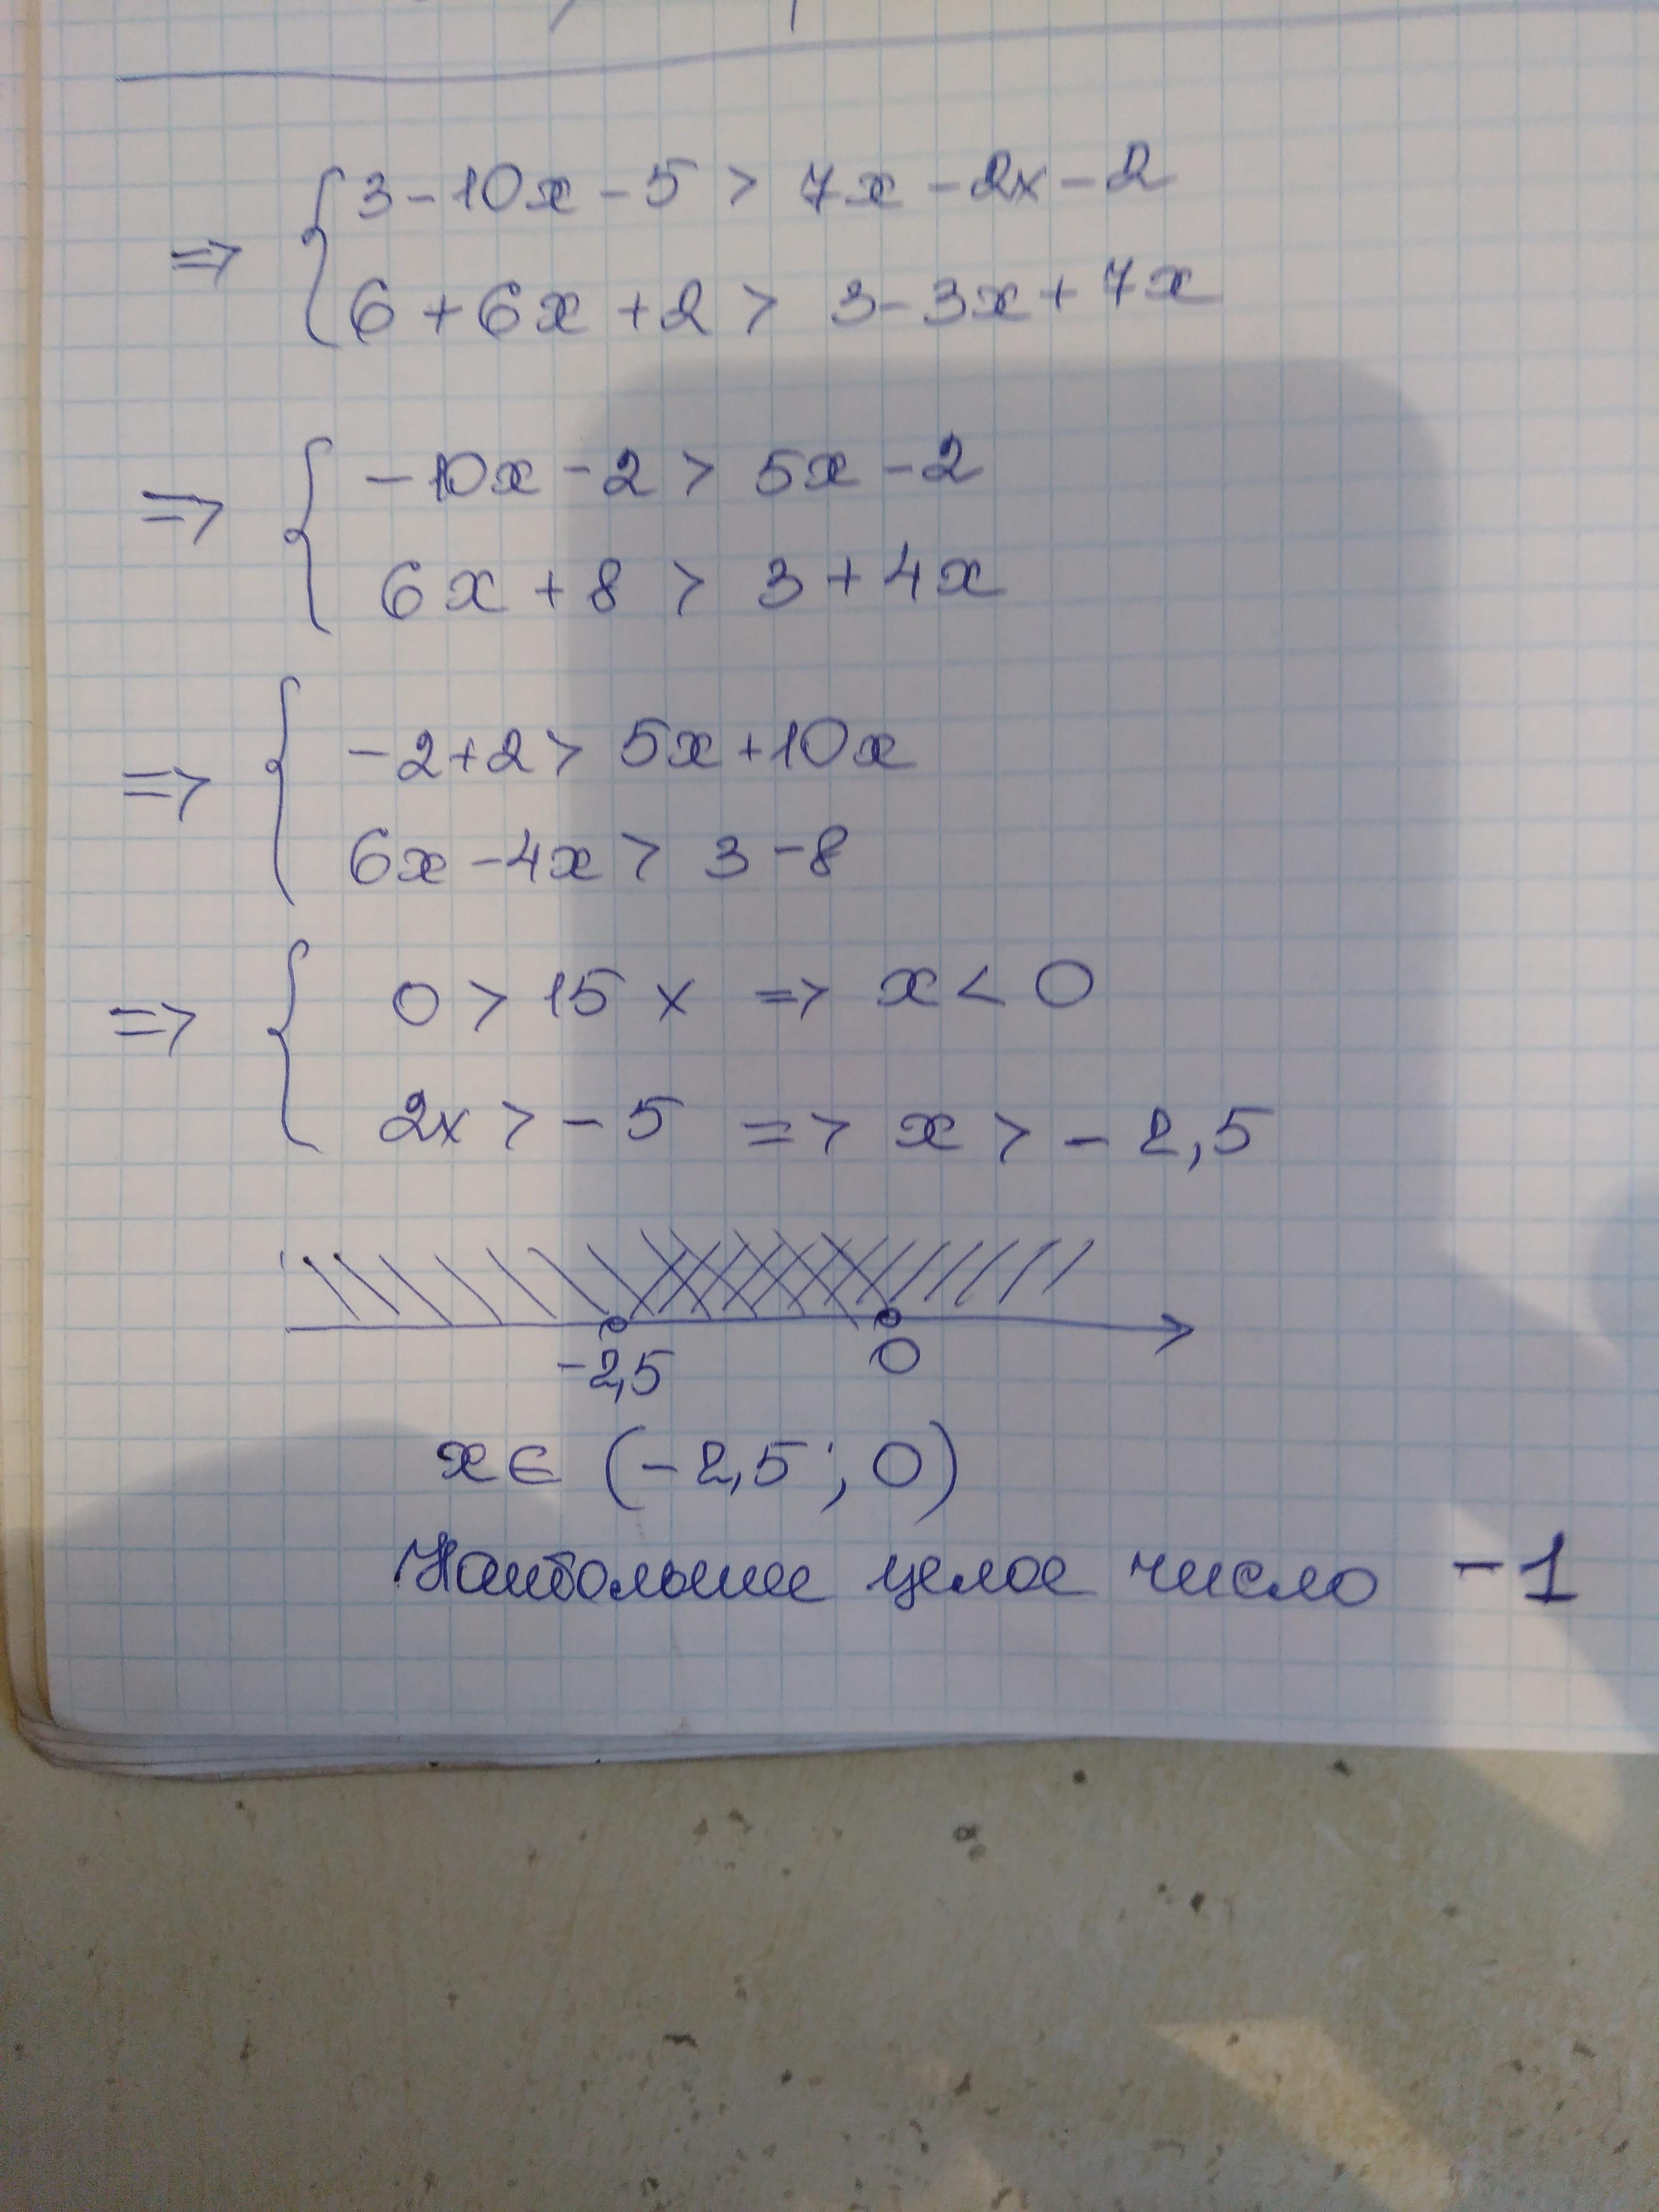 3 - 10x - 5 > 7x - 2x - 2
=> {
6 + 6x + 2 > 3 - 3x + 7x
-10x - 2 > 5x - 2
=> {
6x + 8 > 3 + 4x
-2+2 > 5x+10x
=> {
6x - 4x > 3 - 8
0 > 15x => x < 0
=> {
2x > -5 => x > -2,5
-2,5 0
x ∈ (-2,5; 0)
Наибольшее целое число -1